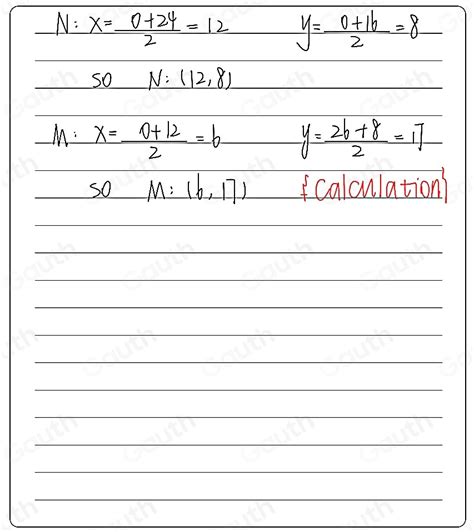 N: x = (0+24)/2 = 12 y = (0+16)/2 = 8
so N: (12,8)
M: x = (0+12)/2 = 6 y = (26+8)/2 = 17
so M: (6, 17) {Calculation}
Gauth